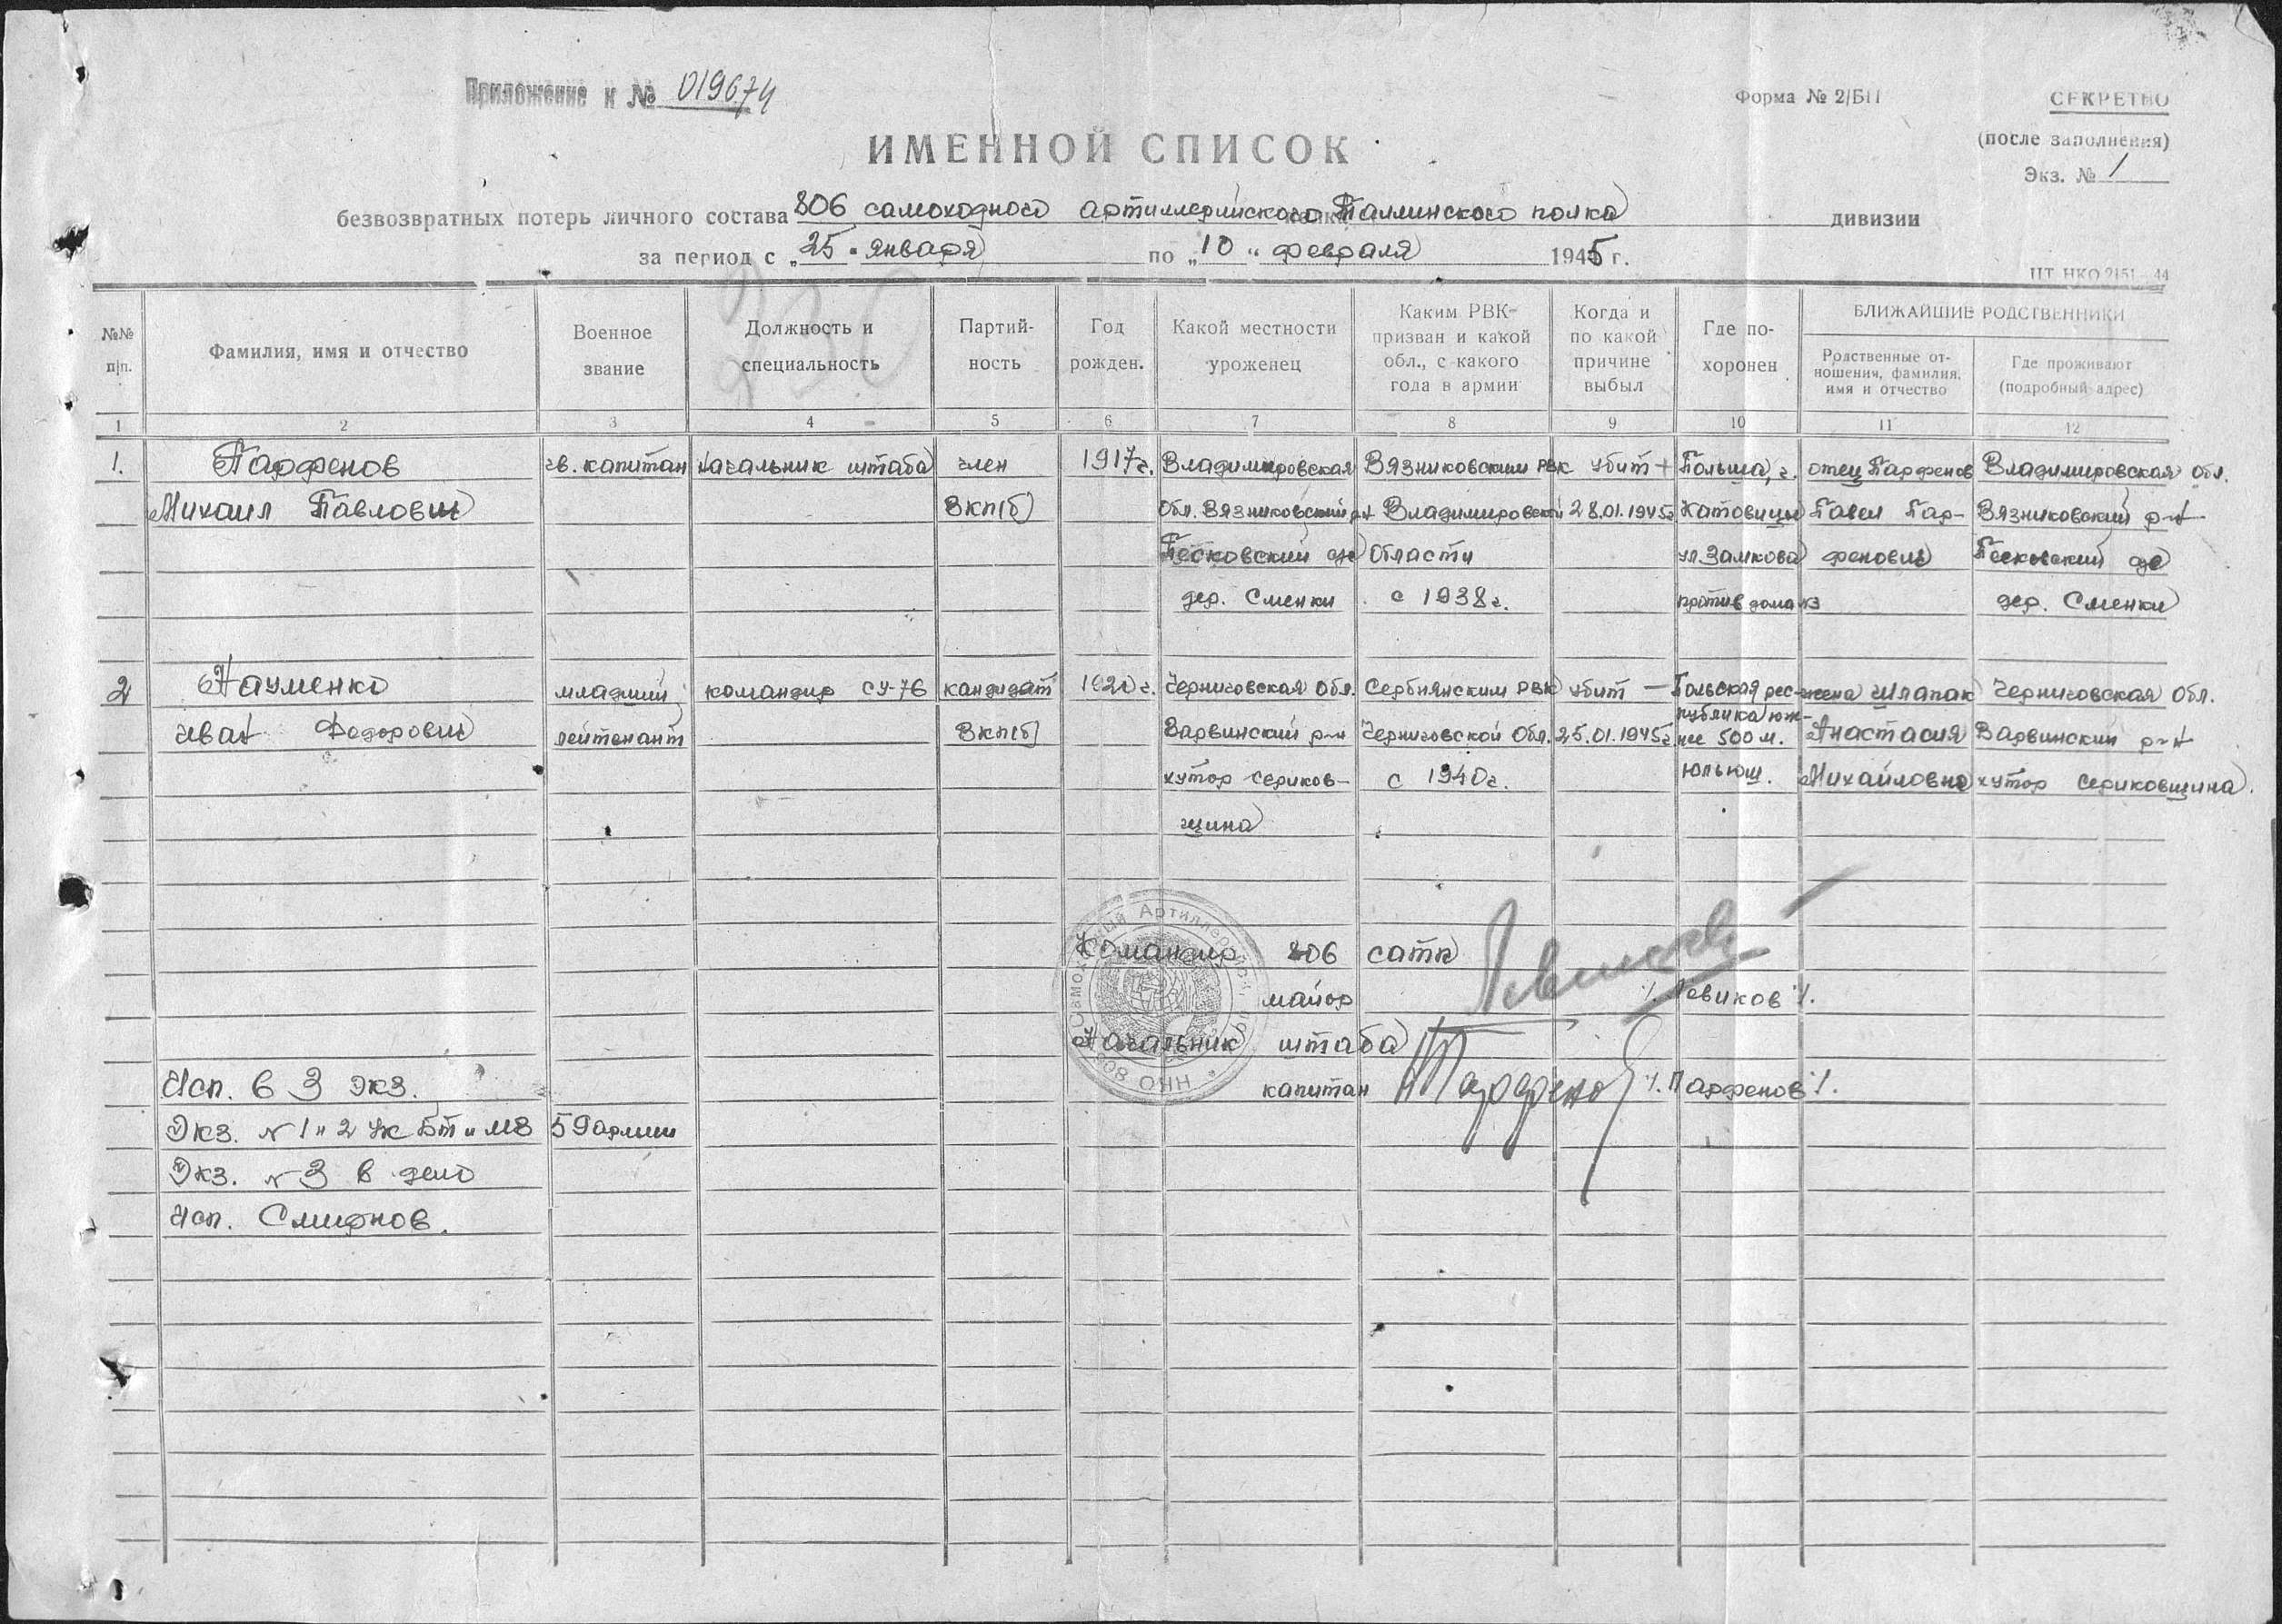 Приложение к № 019674
Форма № 2/БП
СЕКРЕТНО
(после заполнения)
Экз. № 1
ИМЕННОЙ СПИСОК
безвозвратных потерь личного состава 806 самоходного артиллерийского Таллинского полка дивизии
за период с „25" января по „10" февраля 1945 г.
ЦТ НКО 2151—44
№№ п/п.
Фамилия, имя и отчество
Военное звание
Должность и специальность
Партий-ность
Год рожден.
Какой местности уроженец
Каким РВК призван и какой обл., с какого года в армии
Когда и по какой причине выбыл
Где по-хоронен
БЛИЖАЙШИЕ РОДСТВЕННИКИ
Родственные от-ношения, фамилия, имя и отчество
Где проживают (подробный адрес)
1 2 3 4 5 6 7 8 9 10 11 12
1. Парфенов гв. капитан начальник штаба член 1917г. Владимировская Вязниковским РВК убит + Польша, г. отец Парфенов Владимировская обл.
Михаил Павлович ВКП(б) обл. Вязниковский р-н Владимировской 28.01.1945г Катовицы Павел Пар- Вязниковский р-н
Песковский с/с области ул. Замкова фенович Песковский с/с
дер. Сменки с 1938г. против дома №3 дер. Сменки
2 Науменко младший командир СУ-76 кандидат 1920г. Черниговская обл. Сербнянским РВК убит — Польская рес- жена Шлапак Черниговская обл.
Иван Федорович лейтенант ВКП(б) Варвинский р-н Черниговской обл. 25.01.1945г публика юж-нее 500 м. Анастасия Варвинский р-н
хутор Сериков- с 1940г. Юльюш. Михайловна хутор Сериковщина.
щина
Командир 806 сатп
майор /Левиков/.
Начальник штаба
капитан Парфенов /Парфенов/.
Исп. в 3 экз.
Экз. № 1 и 2 Ук БТ и МВ 59 армии
Экз. № 3 в дело
Исп. Смирнов.